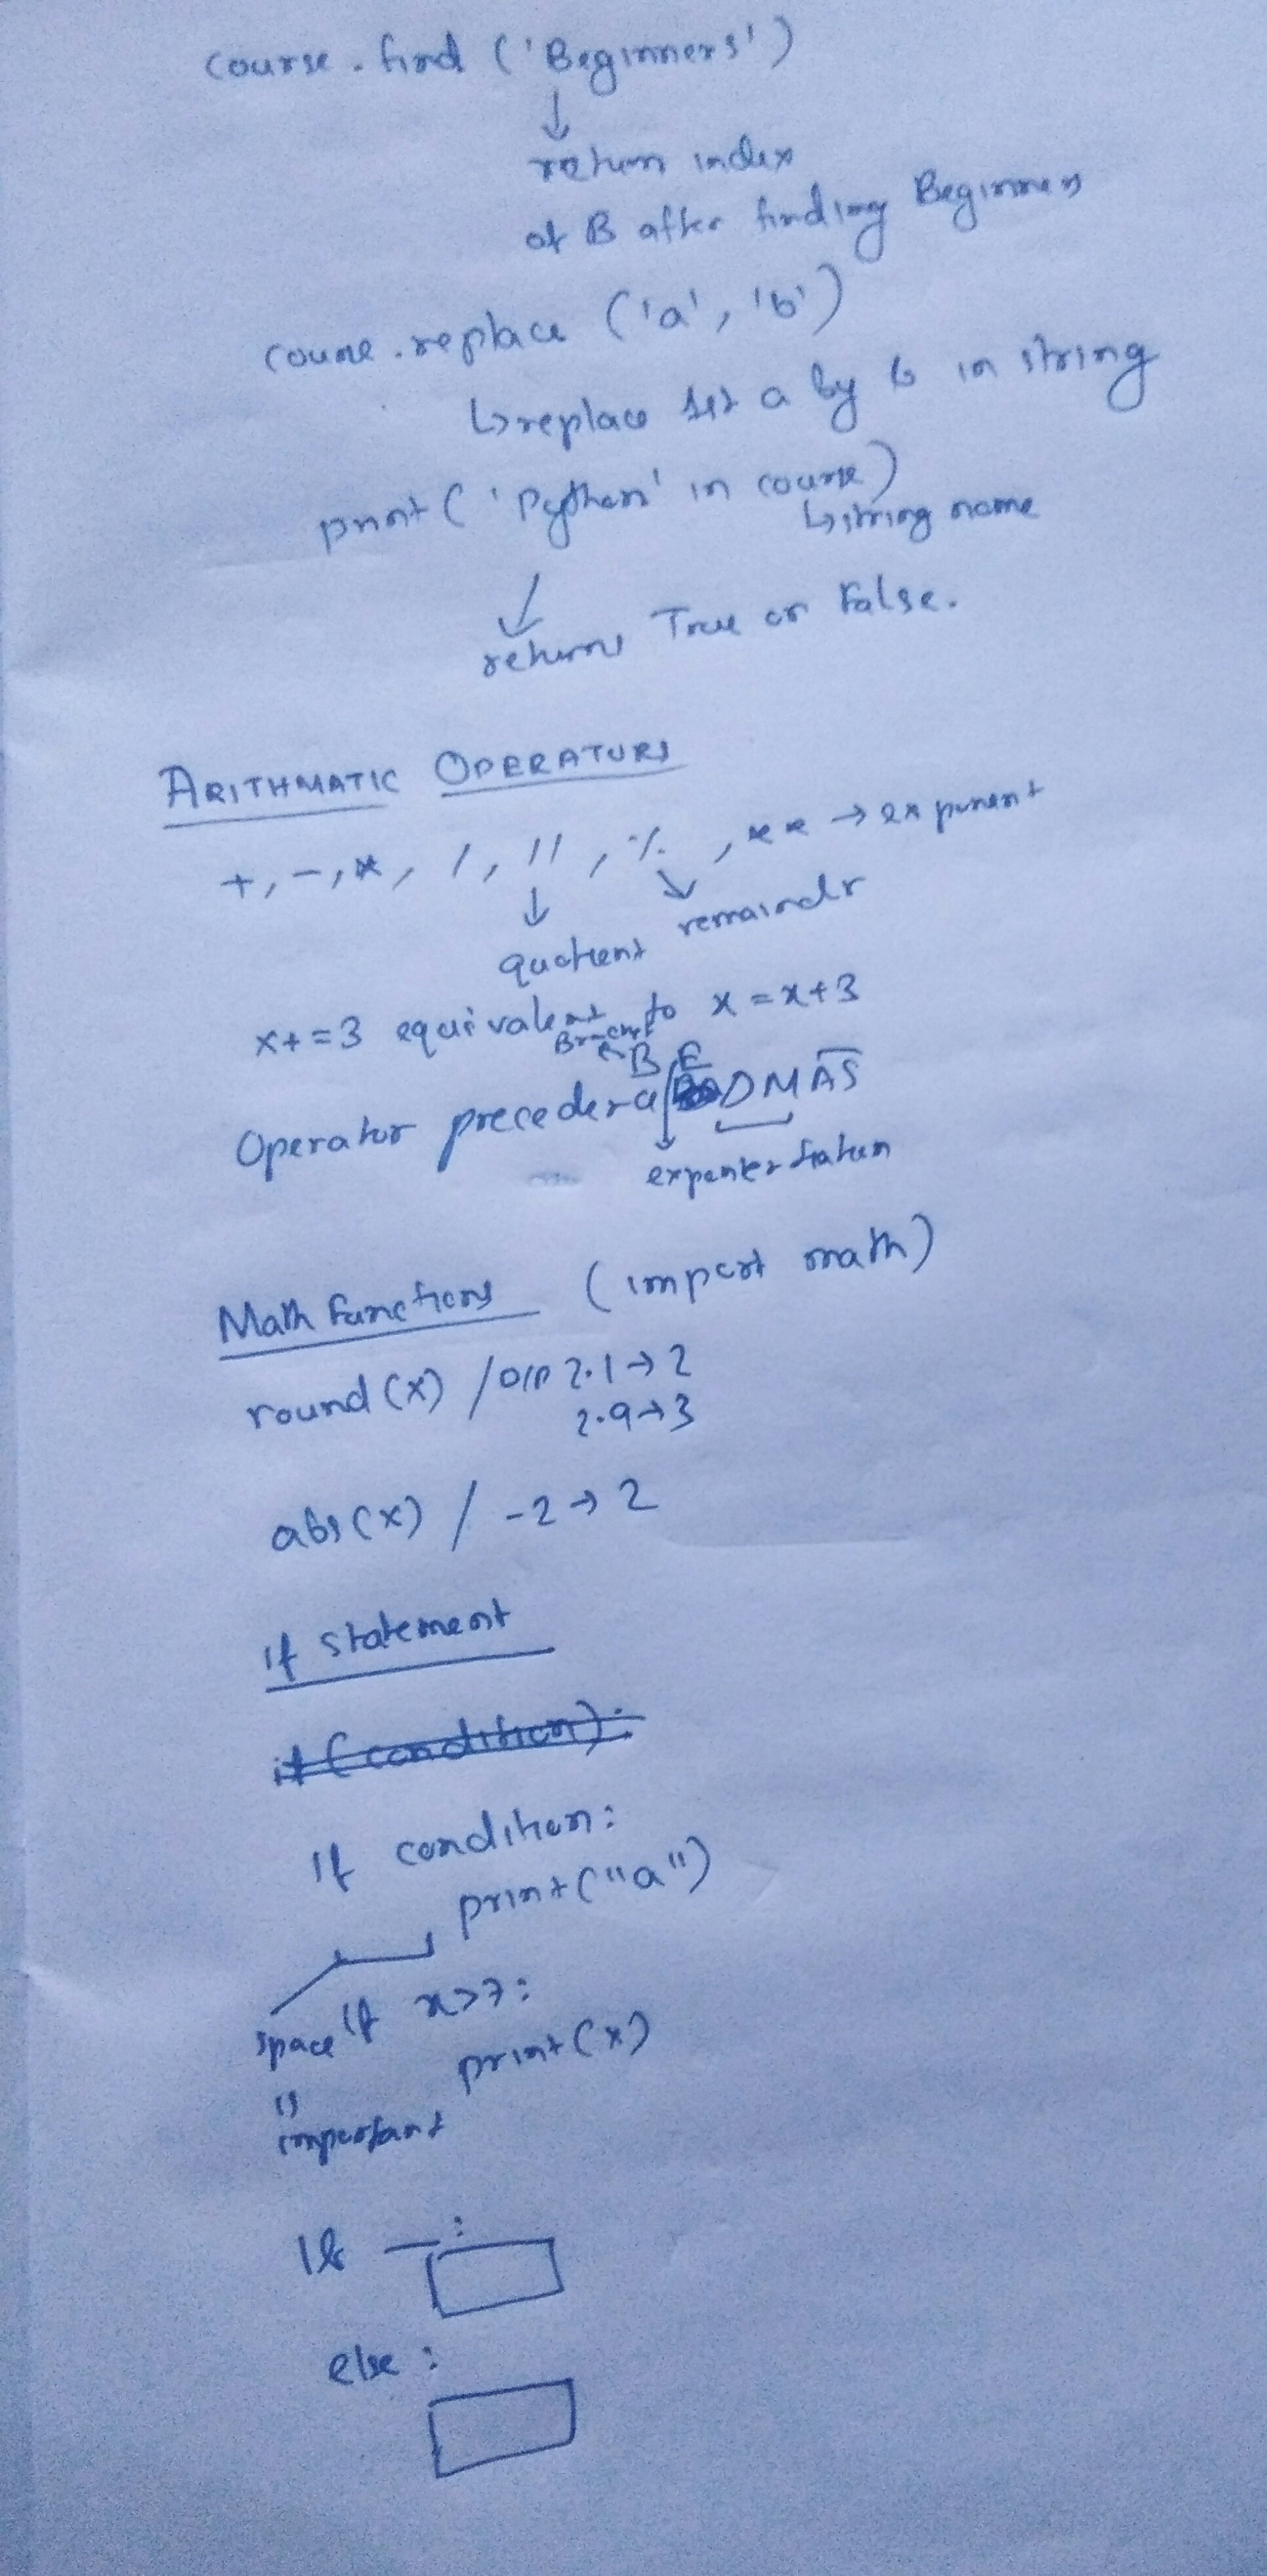 course.find ('Beginners')
↓
return index
of B after finding Beginners
course.replace ('a', 'b')
↳ replace 1st a by b in string
print ('Python' in course)
↳ string name
↓
returns True or False.
ARITHMATIC OPERATORS
+, -, *, /, //, %, ** → exponent
↓ ↘
quotient remainder
x+=3 equivalent to x = x+3
Bracket
B E
Operator precedence DMAS
↓
Math Functions (import math)
round (x) / O/P 2.1 → 2
2.9 → 3
abs (x) / -2 → 2
If statement
if (condition):
If condition:
print ("a")
space If x>7:
is print (x)
important
If —:
else :